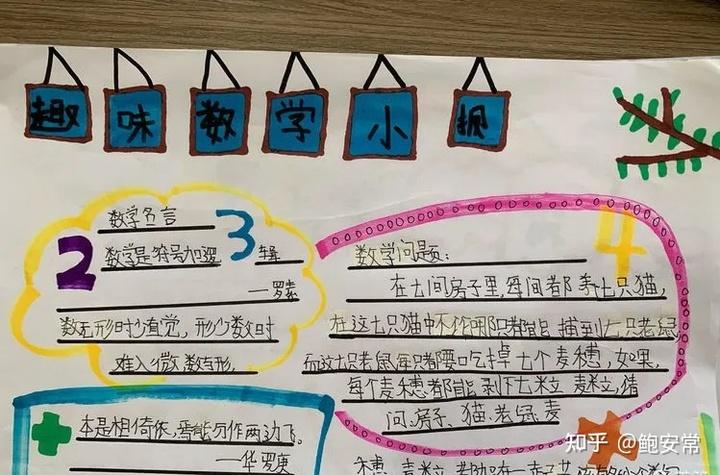 趣味数学小报
数学名言
数学是符号加逻
辑
—罗素
数无形时少直觉，形少数时
难入微，数与形，
本是相倚依，焉能分作两边飞。
—华罗庚
2
3
4
数学问题：
在七间房子里，每间都养七只猫，
在这七只猫中不论哪只都能捕到七只老鼠
而这七只老鼠每只都要吃掉七个麦穗，如果，
每个麦穗都能剥下七粒麦粒，请
问、房子、猫、老鼠、麦
穗、麦粒
知乎 @鲍安常